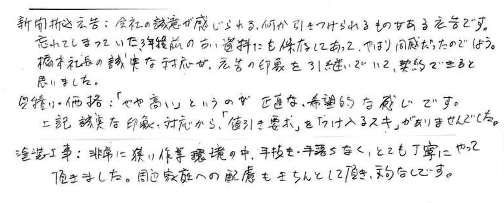 新聞折込広告：会社の誠意が感じられる、何か引きつけられるものがある広告です。
忘れてしまっていた3年程前の古い資料にも保存してあって、やはり同感だったのでしょう。
橋本社長の誠実な対応が、広告の印象を引き継いでいて、契約できると
思いました。
見積り・価格：「やや高い」というのが正直な、希望的な感じです。
上記 誠実な印象・対応から、「値引き要求」を「つけ入るスキ」がありませんでした。
塗装工事：非常に狭い作業環境の中、手抜き・手落ちなく、とても丁寧にやって
頂きました。周辺家庭への配慮もきちんとして頂き、文句なしです。